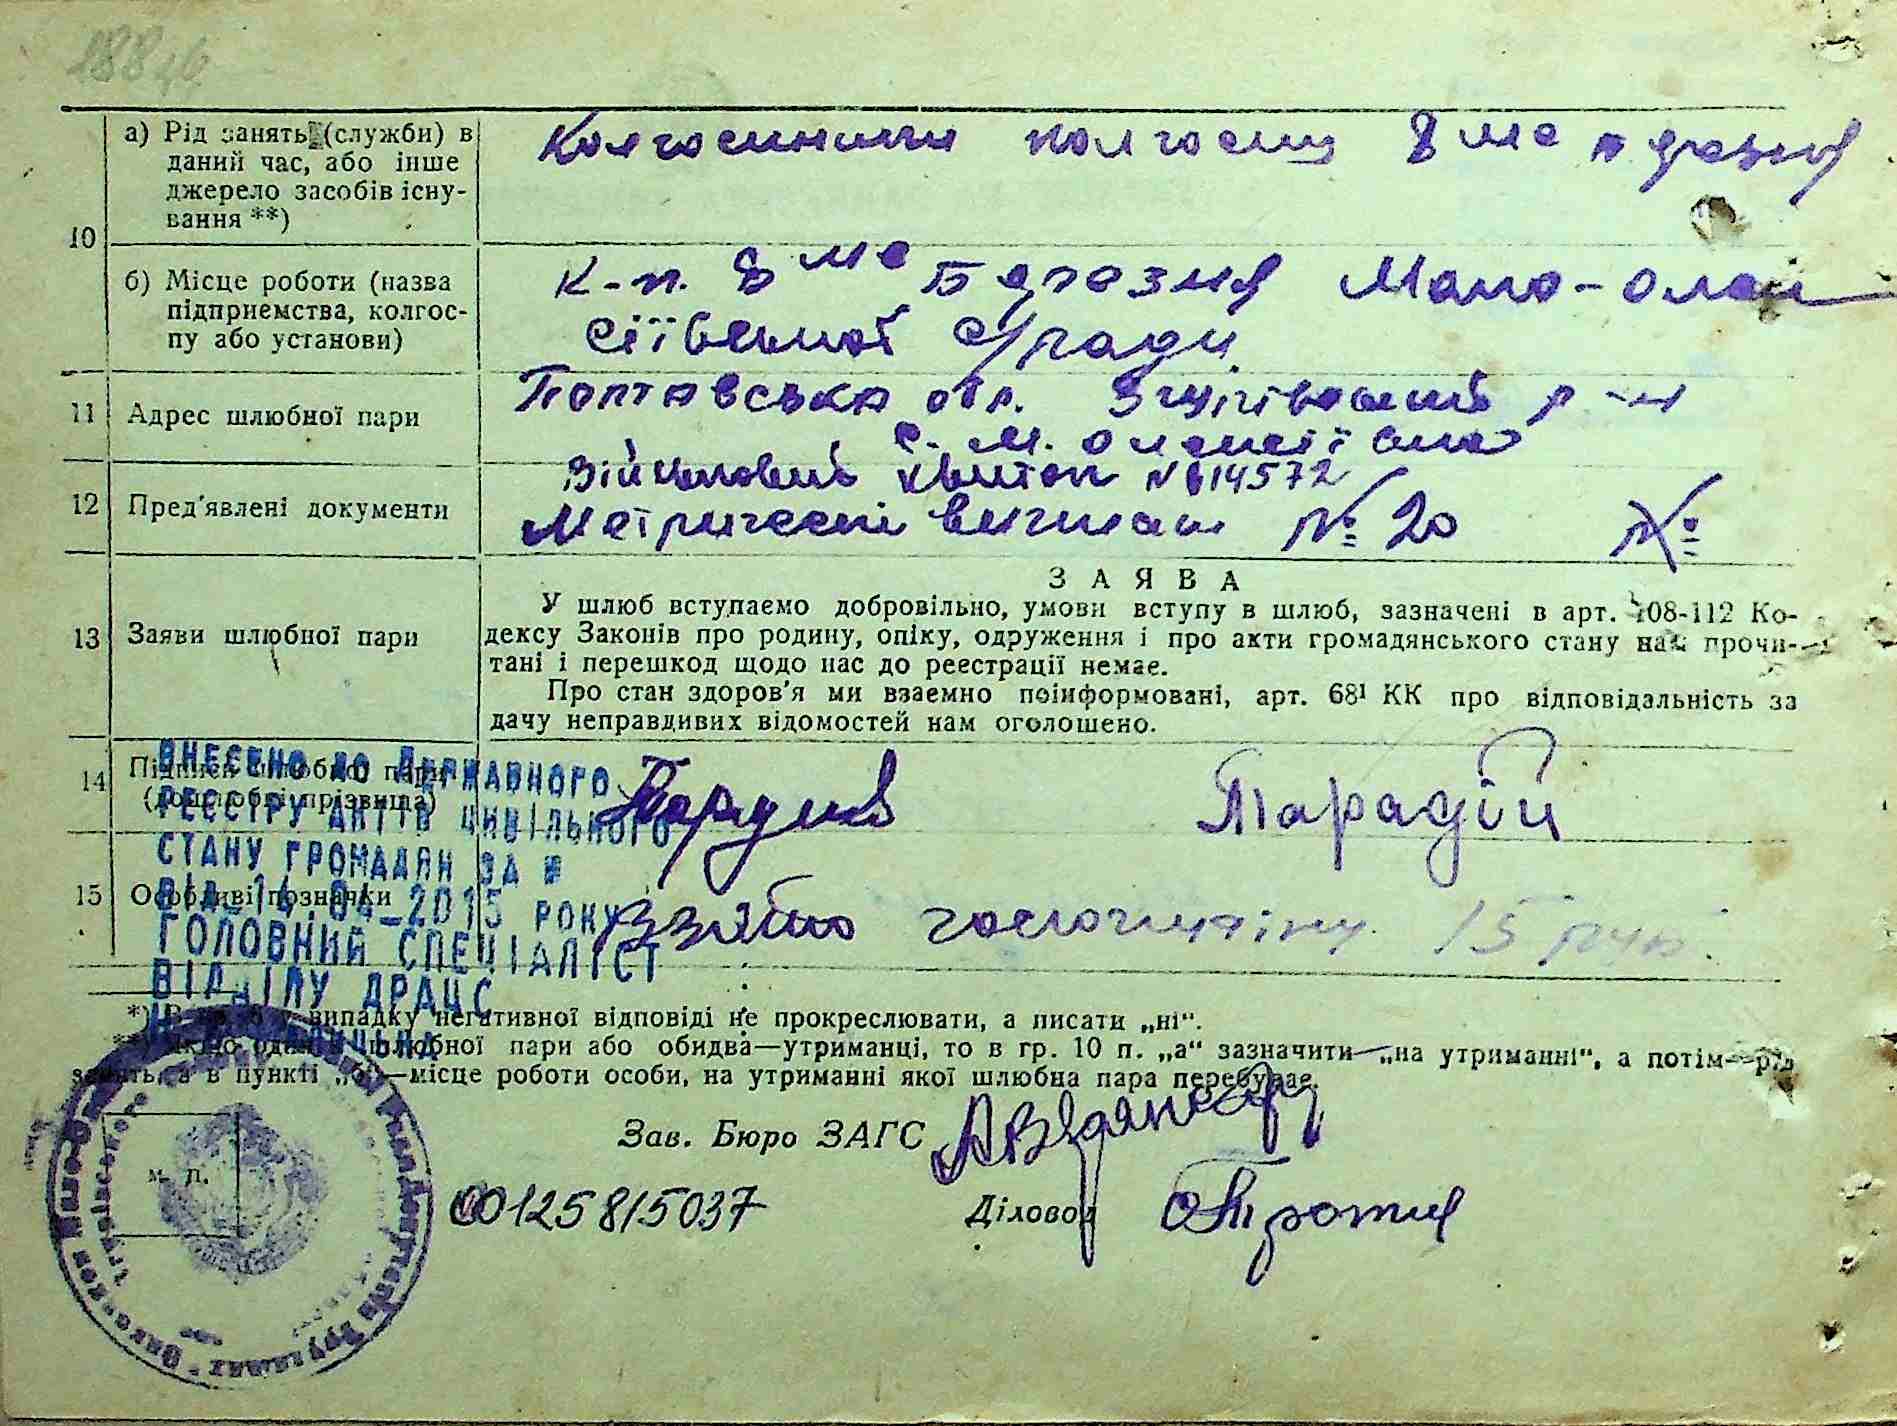 188
10
а) Рід занять (служби) в
даний час, або інше
джерело засобів існу-
вання **)
Колгоспники колгоспу 8 ме
б) Місце роботи (назва
підприємства, колгос-
пу або установи)
к-п. 8 ме Березня Мало-олек
сіївської с/ради
11 Адрес шлюбної пари
Полтавська обл. Згурівський р-н
с. М. олексіївка
12 Пред'явлені документи
Військовий квиток № 14572
Метрическі № 20 №
13 Заяви шлюбної пари
ЗАЯВА
У шлюб вступаємо добровільно, умови вступу в шлюб, зазначені в арт. 108-112 Ко-
дексу Законів про родину, опіку, одруження і про акти громадянського стану нам прочи-
тані і перешкод щодо нас до реєстрації немає.
Про стан здоров'я ми взаємно поінформовані, арт. 68¹ КК про відповідальність за
дачу неправдивих відомостей нам оголошено.
14 Підписи шлюбної пари
(дошлюбні прізвища)
Парадій
15 Особливі позначки
Взято 15 руб.
ВНЕСЕНО ДО ДЕРЖАВНОГО
РЕЄСТРУ АКТІВ ЦИВІЛЬНОГО
СТАНУ ГРОМАДЯН ЗА №
ВІД 14.04.2015 РОКУ
ГОЛОВНИЙ СПЕЦІАЛІСТ
ВІДДІЛУ ДРАЦС
*) випадку негативної відповіді не прокреслювати, а писати „ні".
**) шлюбної пари або обидва—утриманці, то в гр. 10 п. „а" зазначити—„на утриманні", а потім—рід
занять, а в пункті „б"—місце роботи особи, на утриманні якої шлюбна пара перебуває.
Зав. Бюро ЗАГС
м. п.
00125815037
Діловод